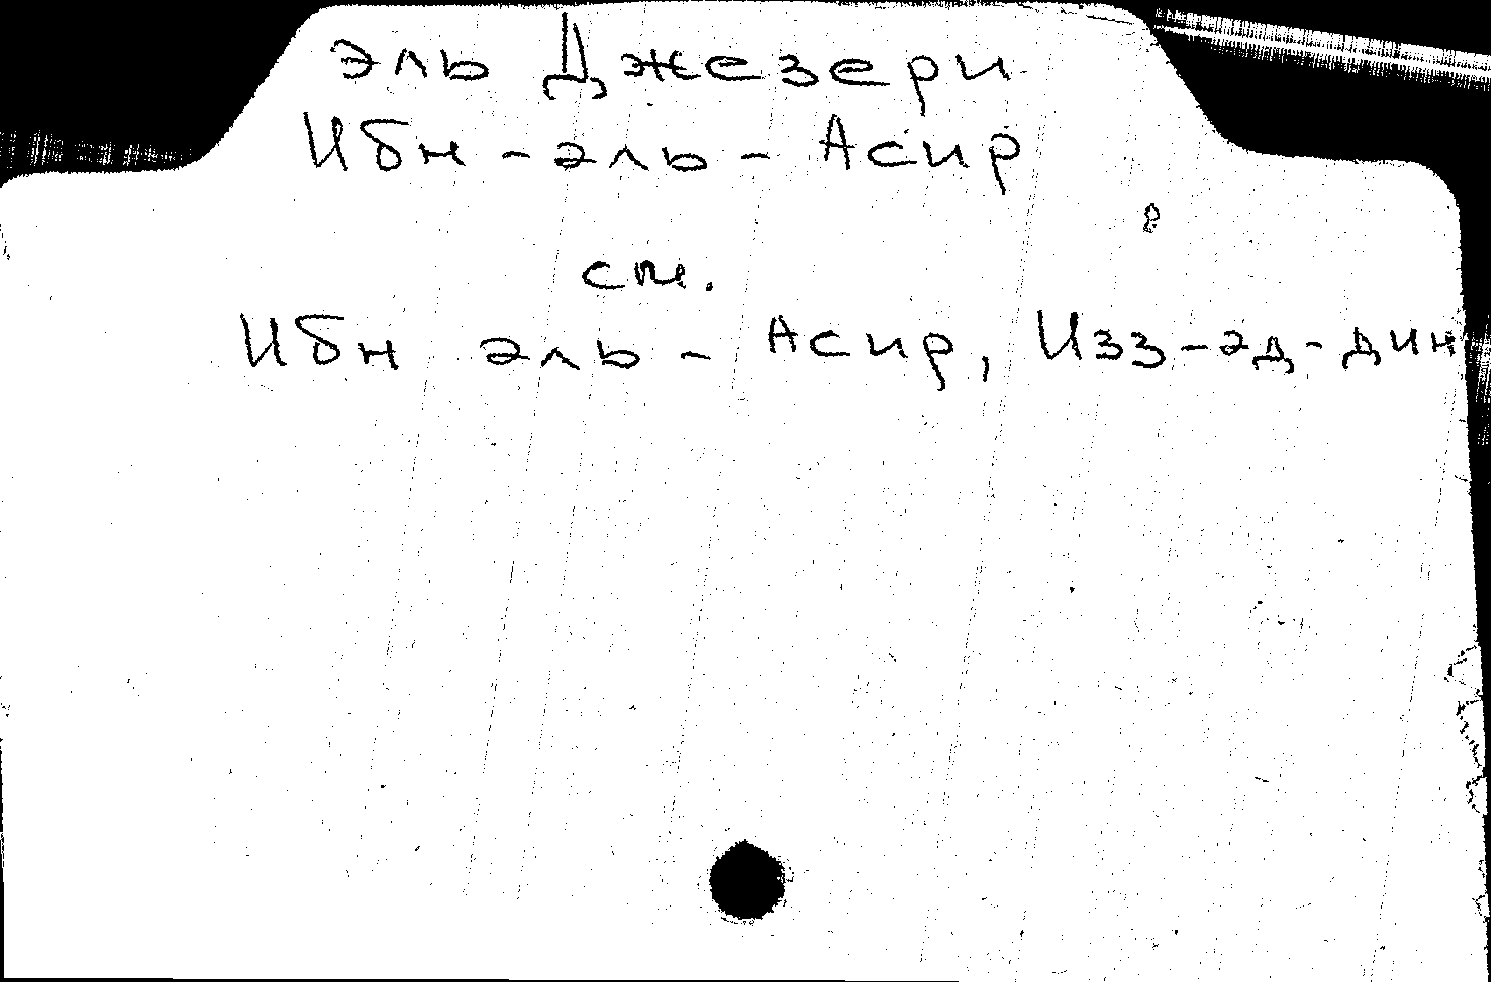 эль Джезери
Ибн-эль-Асир
см.
Ибн эль-Асир, Изз-эд-дин